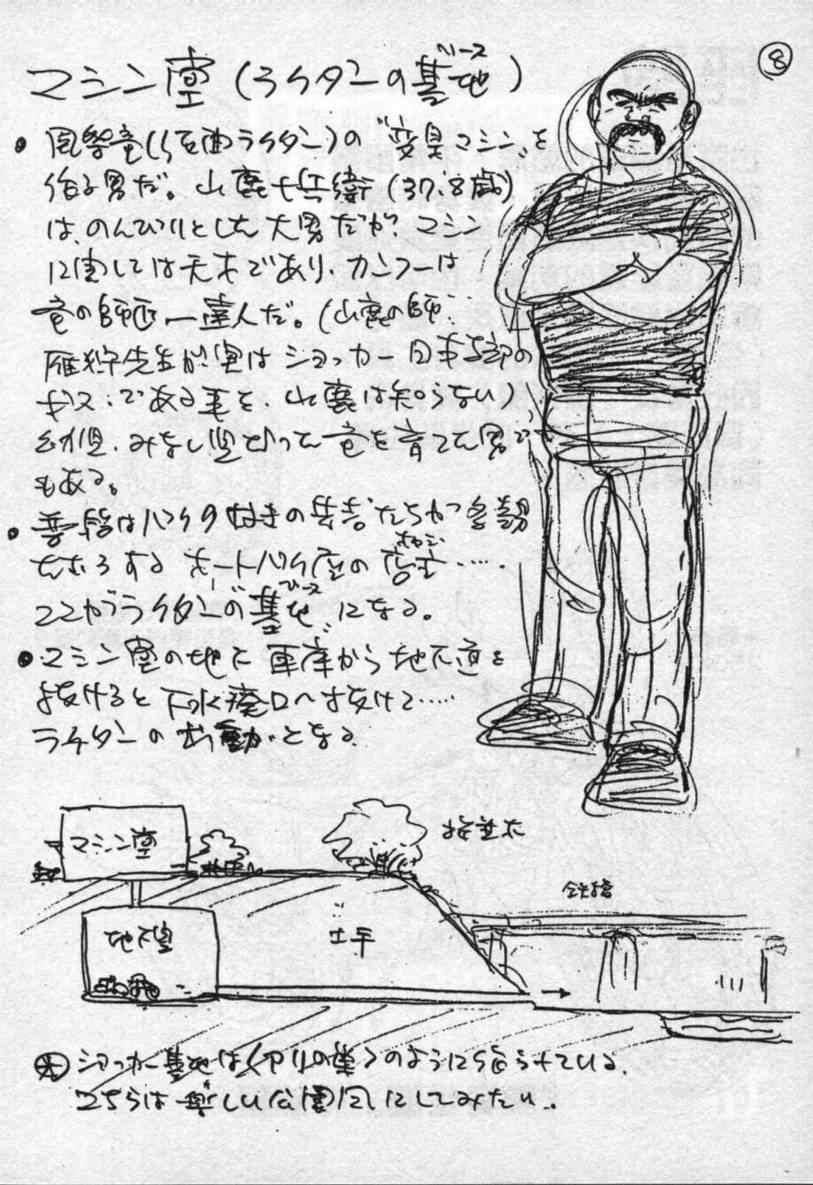 ⑧
マシン堂(ライダーの基地)
ベース
● 風 竜( ライダー)の〝変身マシン〟を
作る男だ。山鹿七兵衛(37.8歳)
は、のんびりとした大男だが、マシン
に関しては天才であり、カンフーは
竜の師匠―達人だ。(山鹿の師
先生が実はショッカー日本支部の
ボス、である事を、山鹿は知らない)
幼児、みなし児だった竜を育てた男で
もある。
● 普段はバイク好きの若者たちが
たむろするオートバイ店の店主……
ココがライダーの〝基地〟になる。
ベース
● マシン堂の地下車庫から地下道を
抜けると下水廃口へ抜けて……
ライダーの出動となる。
マシン堂
地下室
土手
鉄橋
ショッカー基地は〈アリの巣〉のように
こちらは楽しい公園風にしてみたい。